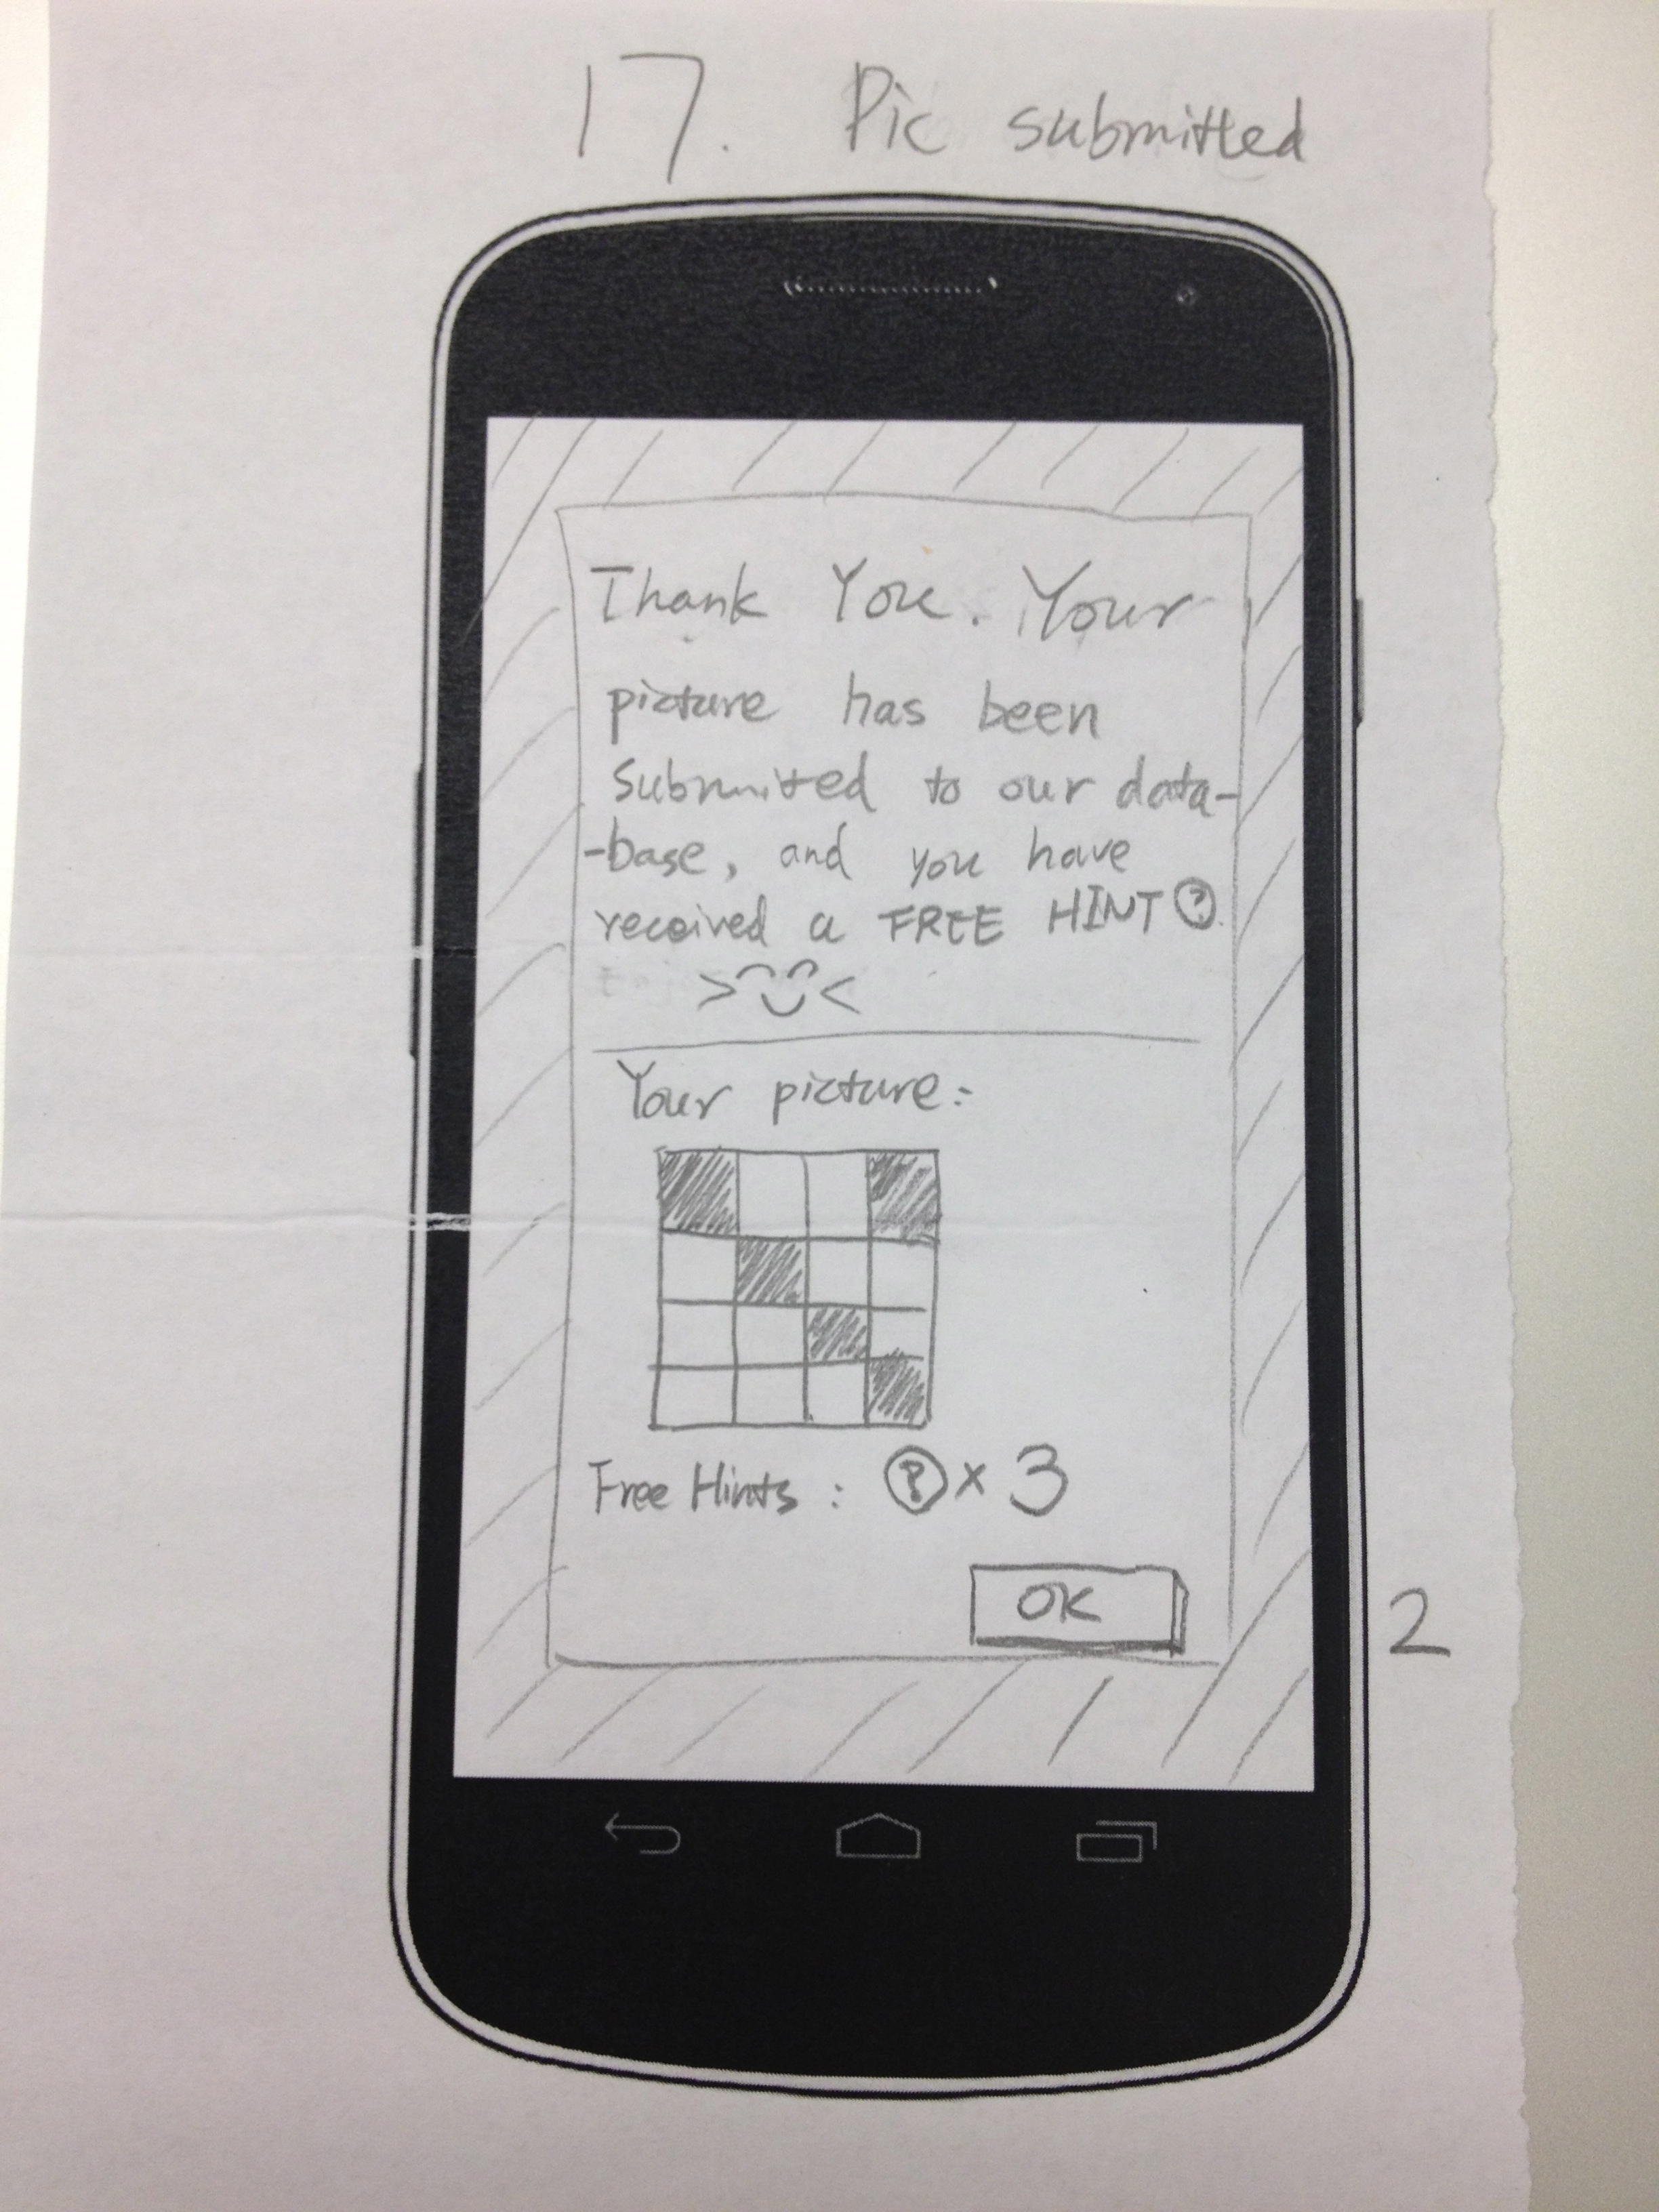 17. Pic submitted
Thank You. Your
picture has been
submitted to our data-
-base, and you have
received a FREE HINT ?.
Your picture:
Free Hints: ? x 3
OK
2